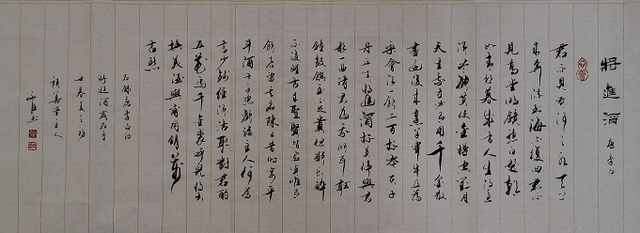 將進酒 唐 李白
君不見黃河之水天上
來奔流到海不復回君不
見高堂明鏡悲白髮朝
如青絲暮成雪人生得意
須盡歡莫使金樽空對月
天生我材必有用千金散
盡還復來烹羊宰牛且為
樂會須一飲三百杯岑夫子
丹丘生將進酒杯莫停與君
歌一曲請君為我傾耳聽
鐘鼓饌玉不足貴但願長醉
不復醒古來聖賢皆寂寞惟有
飲者留其名陳王昔時宴平
樂斗酒十千恣歡謔主人何為
言少錢徑須沽取對君酌
五花馬千金裘呼兒將出
換美酒與爾同銷萬
古愁
李白
主人